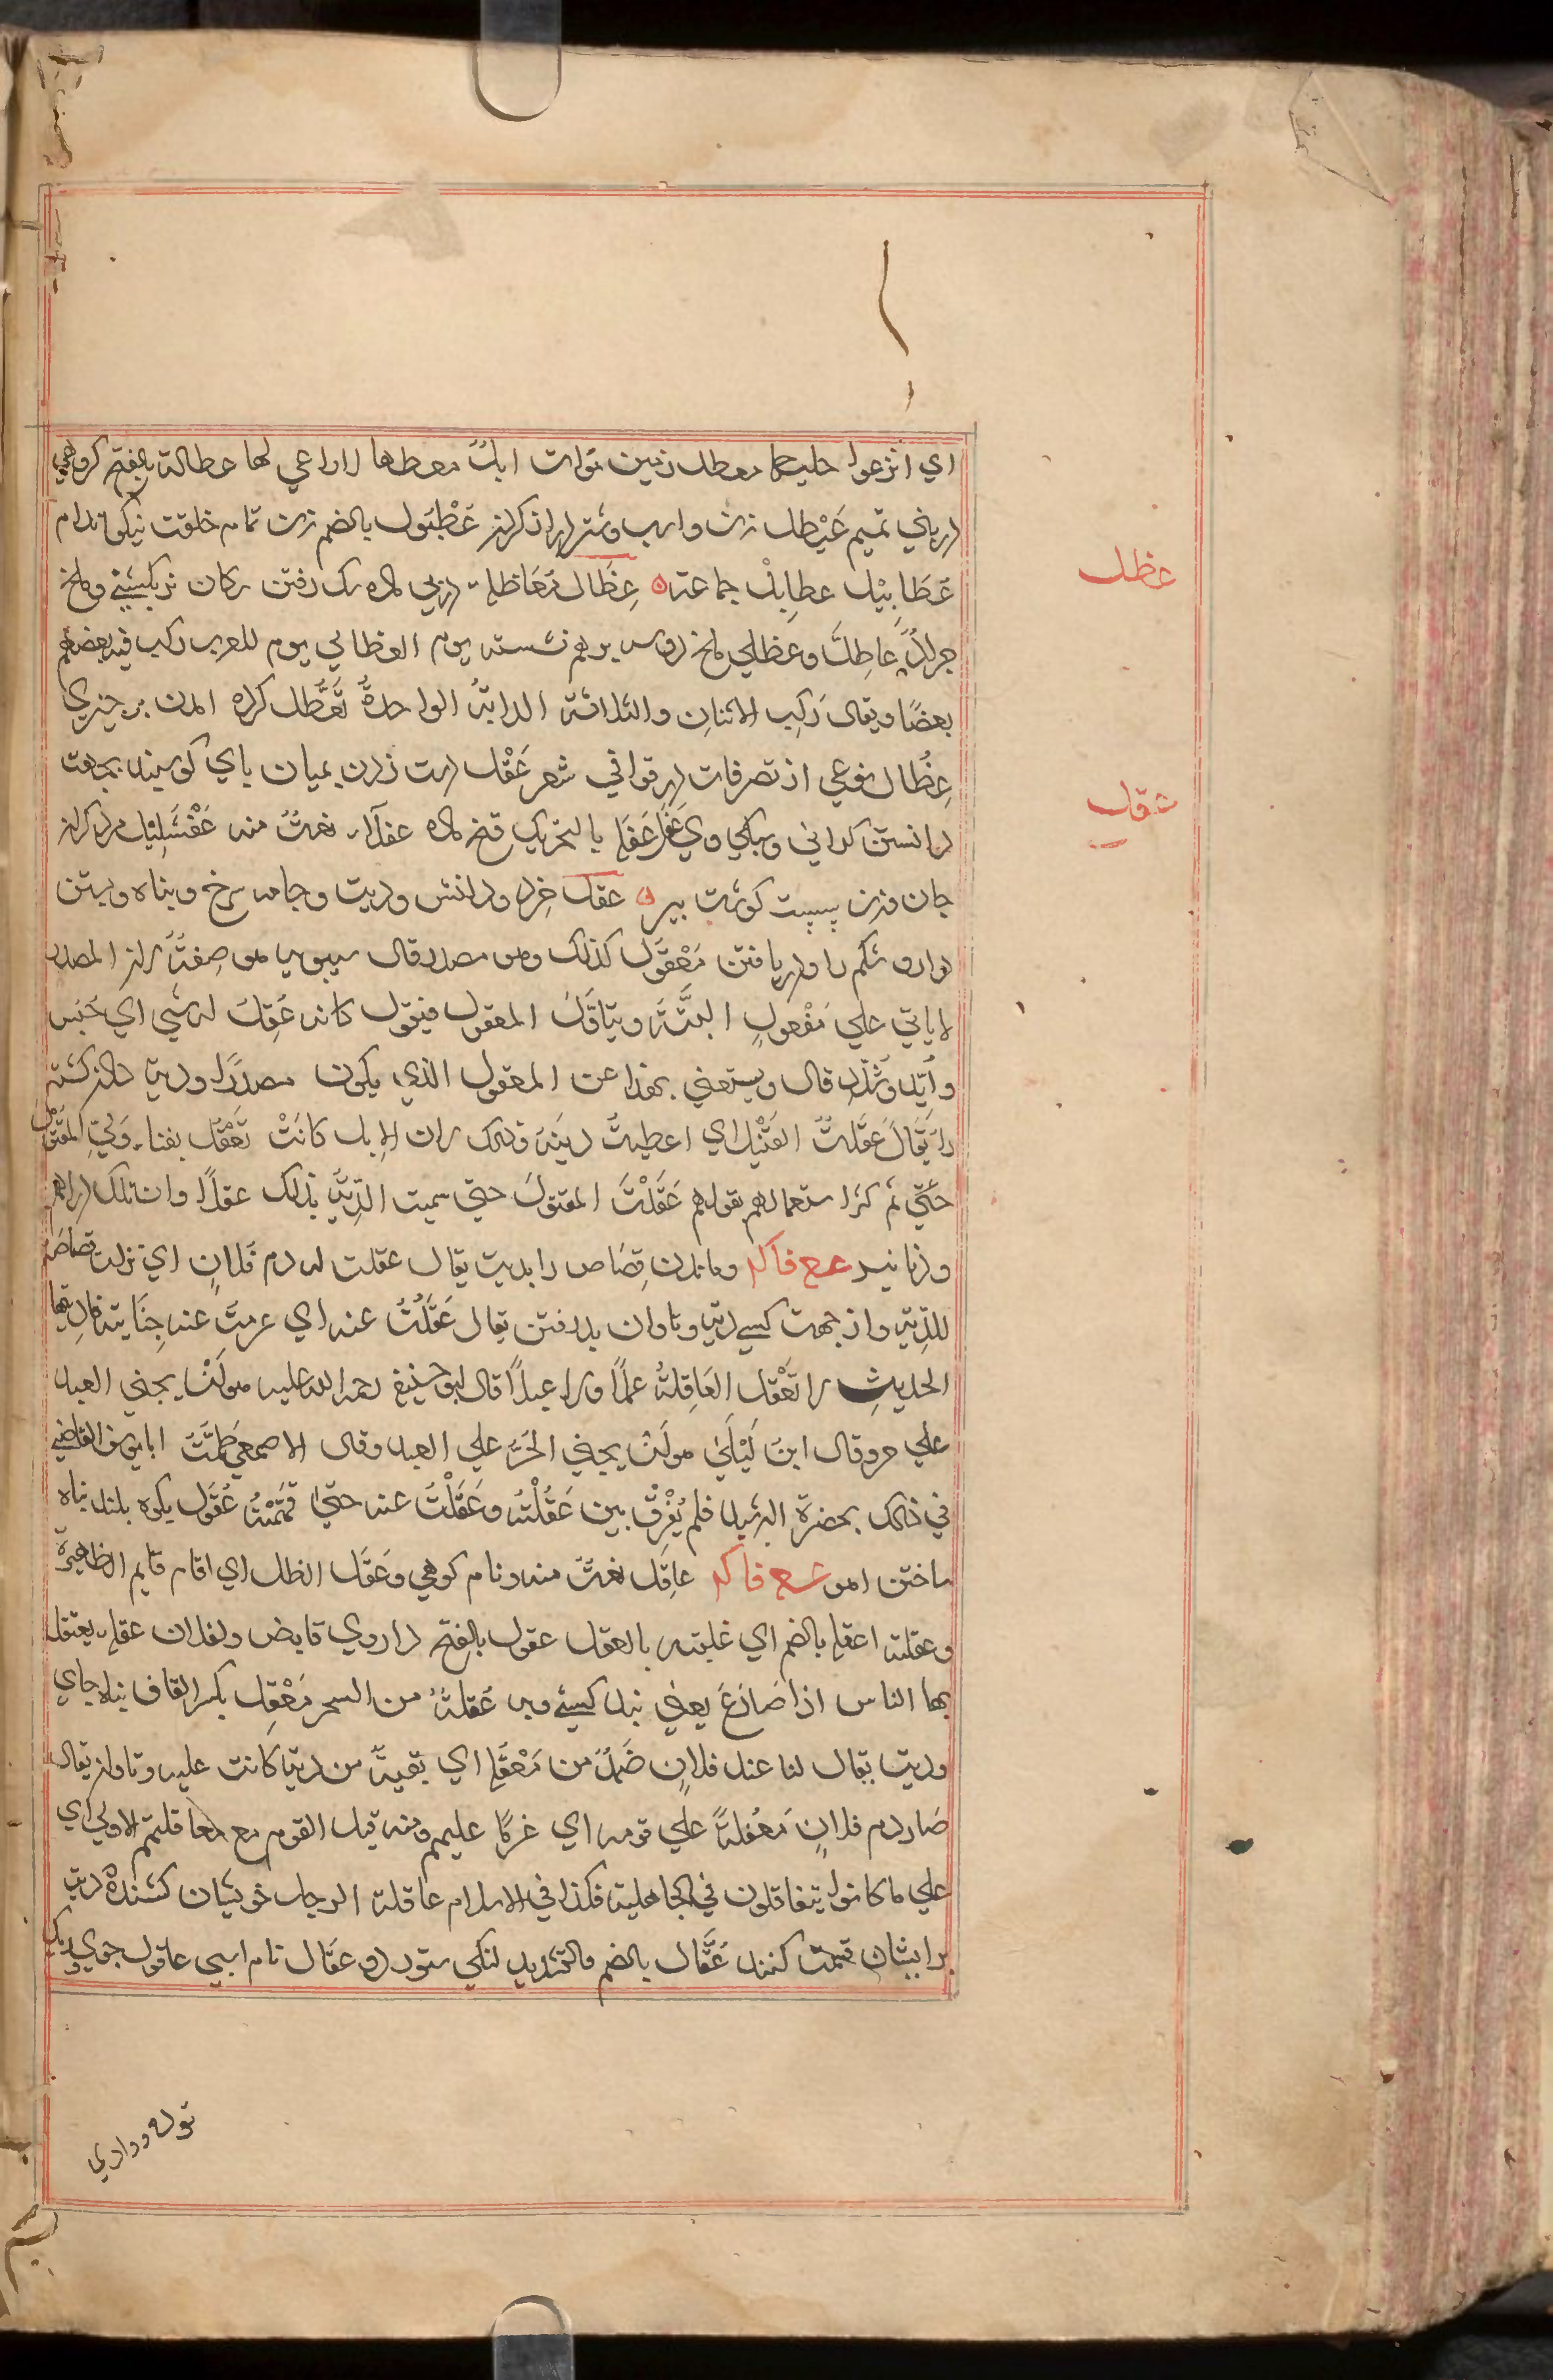 اي انزعوا حليها معطل زمين موات ابل معطلها لا راعي لها عطالة بالفتح كروهي
از بني تميم عَيْطل زن واسب وشتر دراز كردن عُطْبُول بالضم زن تمام خلقت نيكو اندام
عَطَابِيْل عطابِل جماعته عِظَال مُعَاظلة در پي ماده سك رفتن سكان نر بكشني وملخ
جراد عاظل وعظلي ملخ دوسه بر هم نشسته يوم العظالي يوم للعرب ركب فيه بعضهم
بعضًا ويقال رَكِب الاثنان والثلاثة الدابةُ الواحدة تَعَظُّل كرد امدن بر چيزي
عِظَال نوعي از تصرفات در قوافي شعر عَفْل دست زدن بميان پاي كوسپند بجهت
دانستن كراني وسبكي وي عَفَل بالتحريك فتخ ماده عفلاء نعت منه عَفْشَلِيْل مرد كران
جان وزن پست كوشت پير عقل خرد ودانش وديت وجامه سرخ وپناه وبستن
دارو شكم را ودريافتن مَعْقُول كذلك وهو مصدر قال سيبويه هو صِفةٌ لان المصدر
لا ياتي علي مَفْعولٍ البتَّةَ ويتاوَّل المعقول فيقول كانه عُقِلَ له شي اي حُبس
وأيّد وشُدّد قال ويستغني بهذا عن المعقول الذي يكون مصدرًا وديت دادن كشته
را يَقَالَ عَقَلتُ القَتْيل اي اعطيتُ ديَتهُ وذلك لان الابل كانَتْ تُعْقَل بفناء وَلِيّ المقتول
حتّي ثم كثر استعمالهم بقولهم عَقَلْتَ المقتولَ حتي سميت الدِّيَةُ بذلك عقلاً وان تلك دراهم
ودنانير عع فاكم وماندن قِصَاص را بديت يقال عقلت له دم فلانٍ اي تركت قصاصه
للدّيَة واز جهت كسے ديت وتاوان پذرفتن يقال عَقَلْتُ عنه اي غرمتُ عنه جِنَايته قال فقها
الحديثِ لا تَعْقل العَاقِلةُ عمدًا ولا عبدًا قال ابو حنيفه رحمه الله عليه هو اَنْ يجني العبد
علي حر وقال ابن لَيْلَىٰ هو اَنْ يجني الحُرُّ علي العبد وقال الاصمعي كلّمتُ ابا يوسف القاضي
في ذلك بحضرة الرشيد فلم يُفْرِقْ بين عَقَلْتُه وعَقَلْتُ عنه حتيٰ فَهّمْتُه عُقول بكوه بلند پناه
ساختن اهو شع فاكم عاقِل نعتٌ منه ونام كوهي وعَقَل الظل اي اقام قايم الظهيرة
وعقلته اعقله بالضم اي غلبته بالعقل عقول بالفتح داروي قابض ولفلان عقلة يعتقل
بها الناس اذا صَارَعَ يعني بند كسے وبه عُقلةٌ من السحر مَعْقِل بكسر القاف پناه جاي
وديت يقال لنا عند فلانٍ ضَمَدٌ من مَعْقَلة اي بقيةٌ من ديتٍ كانت عليه وتاوان يقال
صَار دم فلانٍ مَعْقُلةً علي قومه اي غرمًا عليهم ومنه قيل القوم علي معاقلتهم الاولي اي
علي ما كانوا يتعاقلون في الجاهلية فكذا في الاسلام عاقلة الرجل خويشان كشنده ديت
بر ايشان قسمت كنند عُقَّال بالضم والتشديد لنكي ستور وذو عقّال نام اسپي عاقول جوي وريك
عظل
عقل
توده ووادي